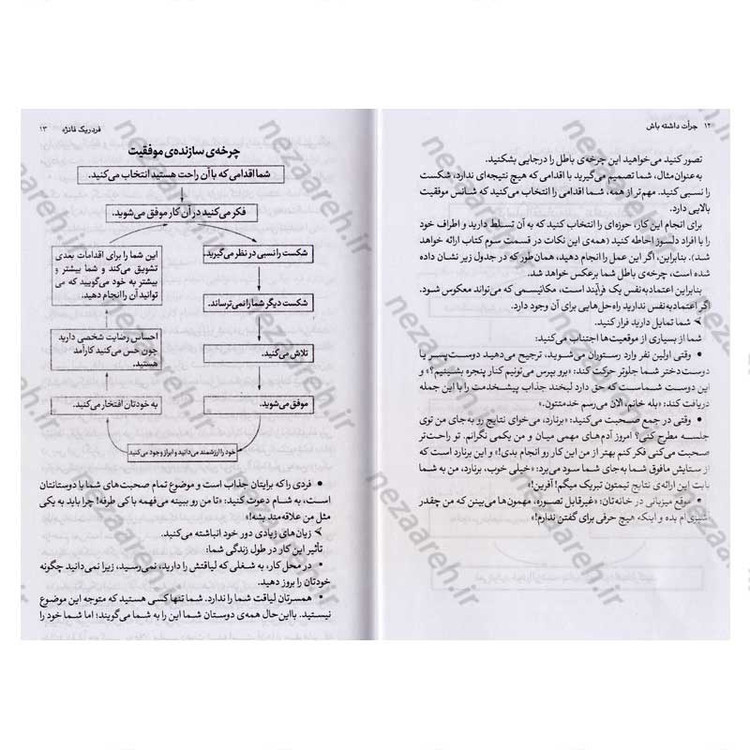 ۱۲ جرأت داشته باش
تصور کنید می‌خواهید این چرخه‌ی باطل را درجایی بشکنید.
به‌عنوان‌مثال، شما تصمیم می‌گیرید با اقدامی که هیچ نتیجه‌ای ندارد، شکست
را نسبی کنید. مهم‌تر از همه، شما اقدامی را انتخاب می‌کنید که شانس موفقیت
بالایی دارد.
برای انجام این کار، حوزه‌ای را انتخاب کنید که به آن تسلط دارید و اطراف خود
را با افراد دلسوز احاطه کنید (همه‌ی این نکات در قسمت سوم کتاب ارائه خواهد
شد). بنابراین، اگر این عمل را انجام دهید، همان‌طور که در جدول زیر نشان داده
شده است، چرخه‌ی باطل شما برعکس خواهد شد.
بنابراین اعتمادبه‌نفس یک فرآیند است، مکانیسمی که می‌تواند معکوس شود.
اگر اعتمادبه‌نفس ندارید راه‌حل‌هایی برای آن وجود دارد.
➢ شما تمایل دارید فرار کنید.
شما از بسیاری از موقعیت‌ها اجتناب می‌کنید:
• وقتی اولین نفر وارد رستوران می‌شوید، ترجیح می‌دهید دوست‌پسر یا
دوست‌دختر شما جلوتر حرکت کند: «برو بپرس می‌تونیم کنار پنجره بشینیم؟» و
این دوست شماست که حق دارد لبخند جذاب پیشخدمت را با این جمله
دریافت کند: «بله خانم، الان می‌رسم خدمتتون.»
• وقتی در جمع صحبت می‌کنید: «برنارد، می‌خوای نتایج رو به‌جای من توی
جلسه مطرح کنی؟ امروز آدم‌های مهمی میان و من یکمی نگرانم. تو راحت‌تر
صحبت می‌کنی فکر کنم بهتر از من این کار رو انجام بدی!» و این برنارد است که
از ستایش مافوق شما به‌جای شما سود می‌برد: «خیلی خوب، برنارد، من به شما
بابت این ارائه‌ی نتایج تیمتون تبریک میگم! آفرین!»
• موقع میزبانی در خانه‌تان: «غیرقابل تصوره، مهمون‌ها می‌بینن که من چقدر
شیری‌ام بده و اینکه هیچ حرفی برای گفتن ندارم!»
فردریک فانژه ۱۳
چرخه‌ی سازنده‌ی موفقیت
شما اقدامی که با آن راحت هستید انتخاب می‌کنید.
فکر می‌کنید در آن کار موفق می‌شوید.
شکست را نسبی در نظر می‌گیرید.
شکست دیگر شما را نمی‌ترساند.
تلاش می‌کنید.
موفق می‌شوید.
خود را ارزشمند می‌دانید و ابراز وجود می‌کنید
به خودتان افتخار می‌کنید.
احساس رضایت شخصی دارید
چون حس می‌کنید کارآمد
هستید.
این شما را برای اقدامات بعدی
تشویق می‌کند و شما بیشتر و
بیشتر به خود می‌گویید که می
توانید آن را انجام دهید.
• فردی را که برایتان جذاب است و موضوع تمام صحبت‌های شما با دوستانتان
است، به شام دعوت کنید: «تا من رو ببینه می‌فهمه با کی طرفه! چرا باید به یکی
مثل من علاقه‌مند بشه!»
➢ زیان‌های زیادی دور خود انباشته می‌کنید.
تأثیر این کار در طول زندگی شما:
• در محل کار، به شغلی که لیاقتش را دارید، نمی‌رسید، زیرا نمی‌دانید چگونه
خودتان را بروز دهید.
• همسرتان لیاقت شما را ندارد. شما تنها کسی هستید که متوجه این موضوع
نیستید. بااین‌حال همه‌ی دوستان شما این را به شما می‌گویند؛ اما شما خود را
nezaareh.ir